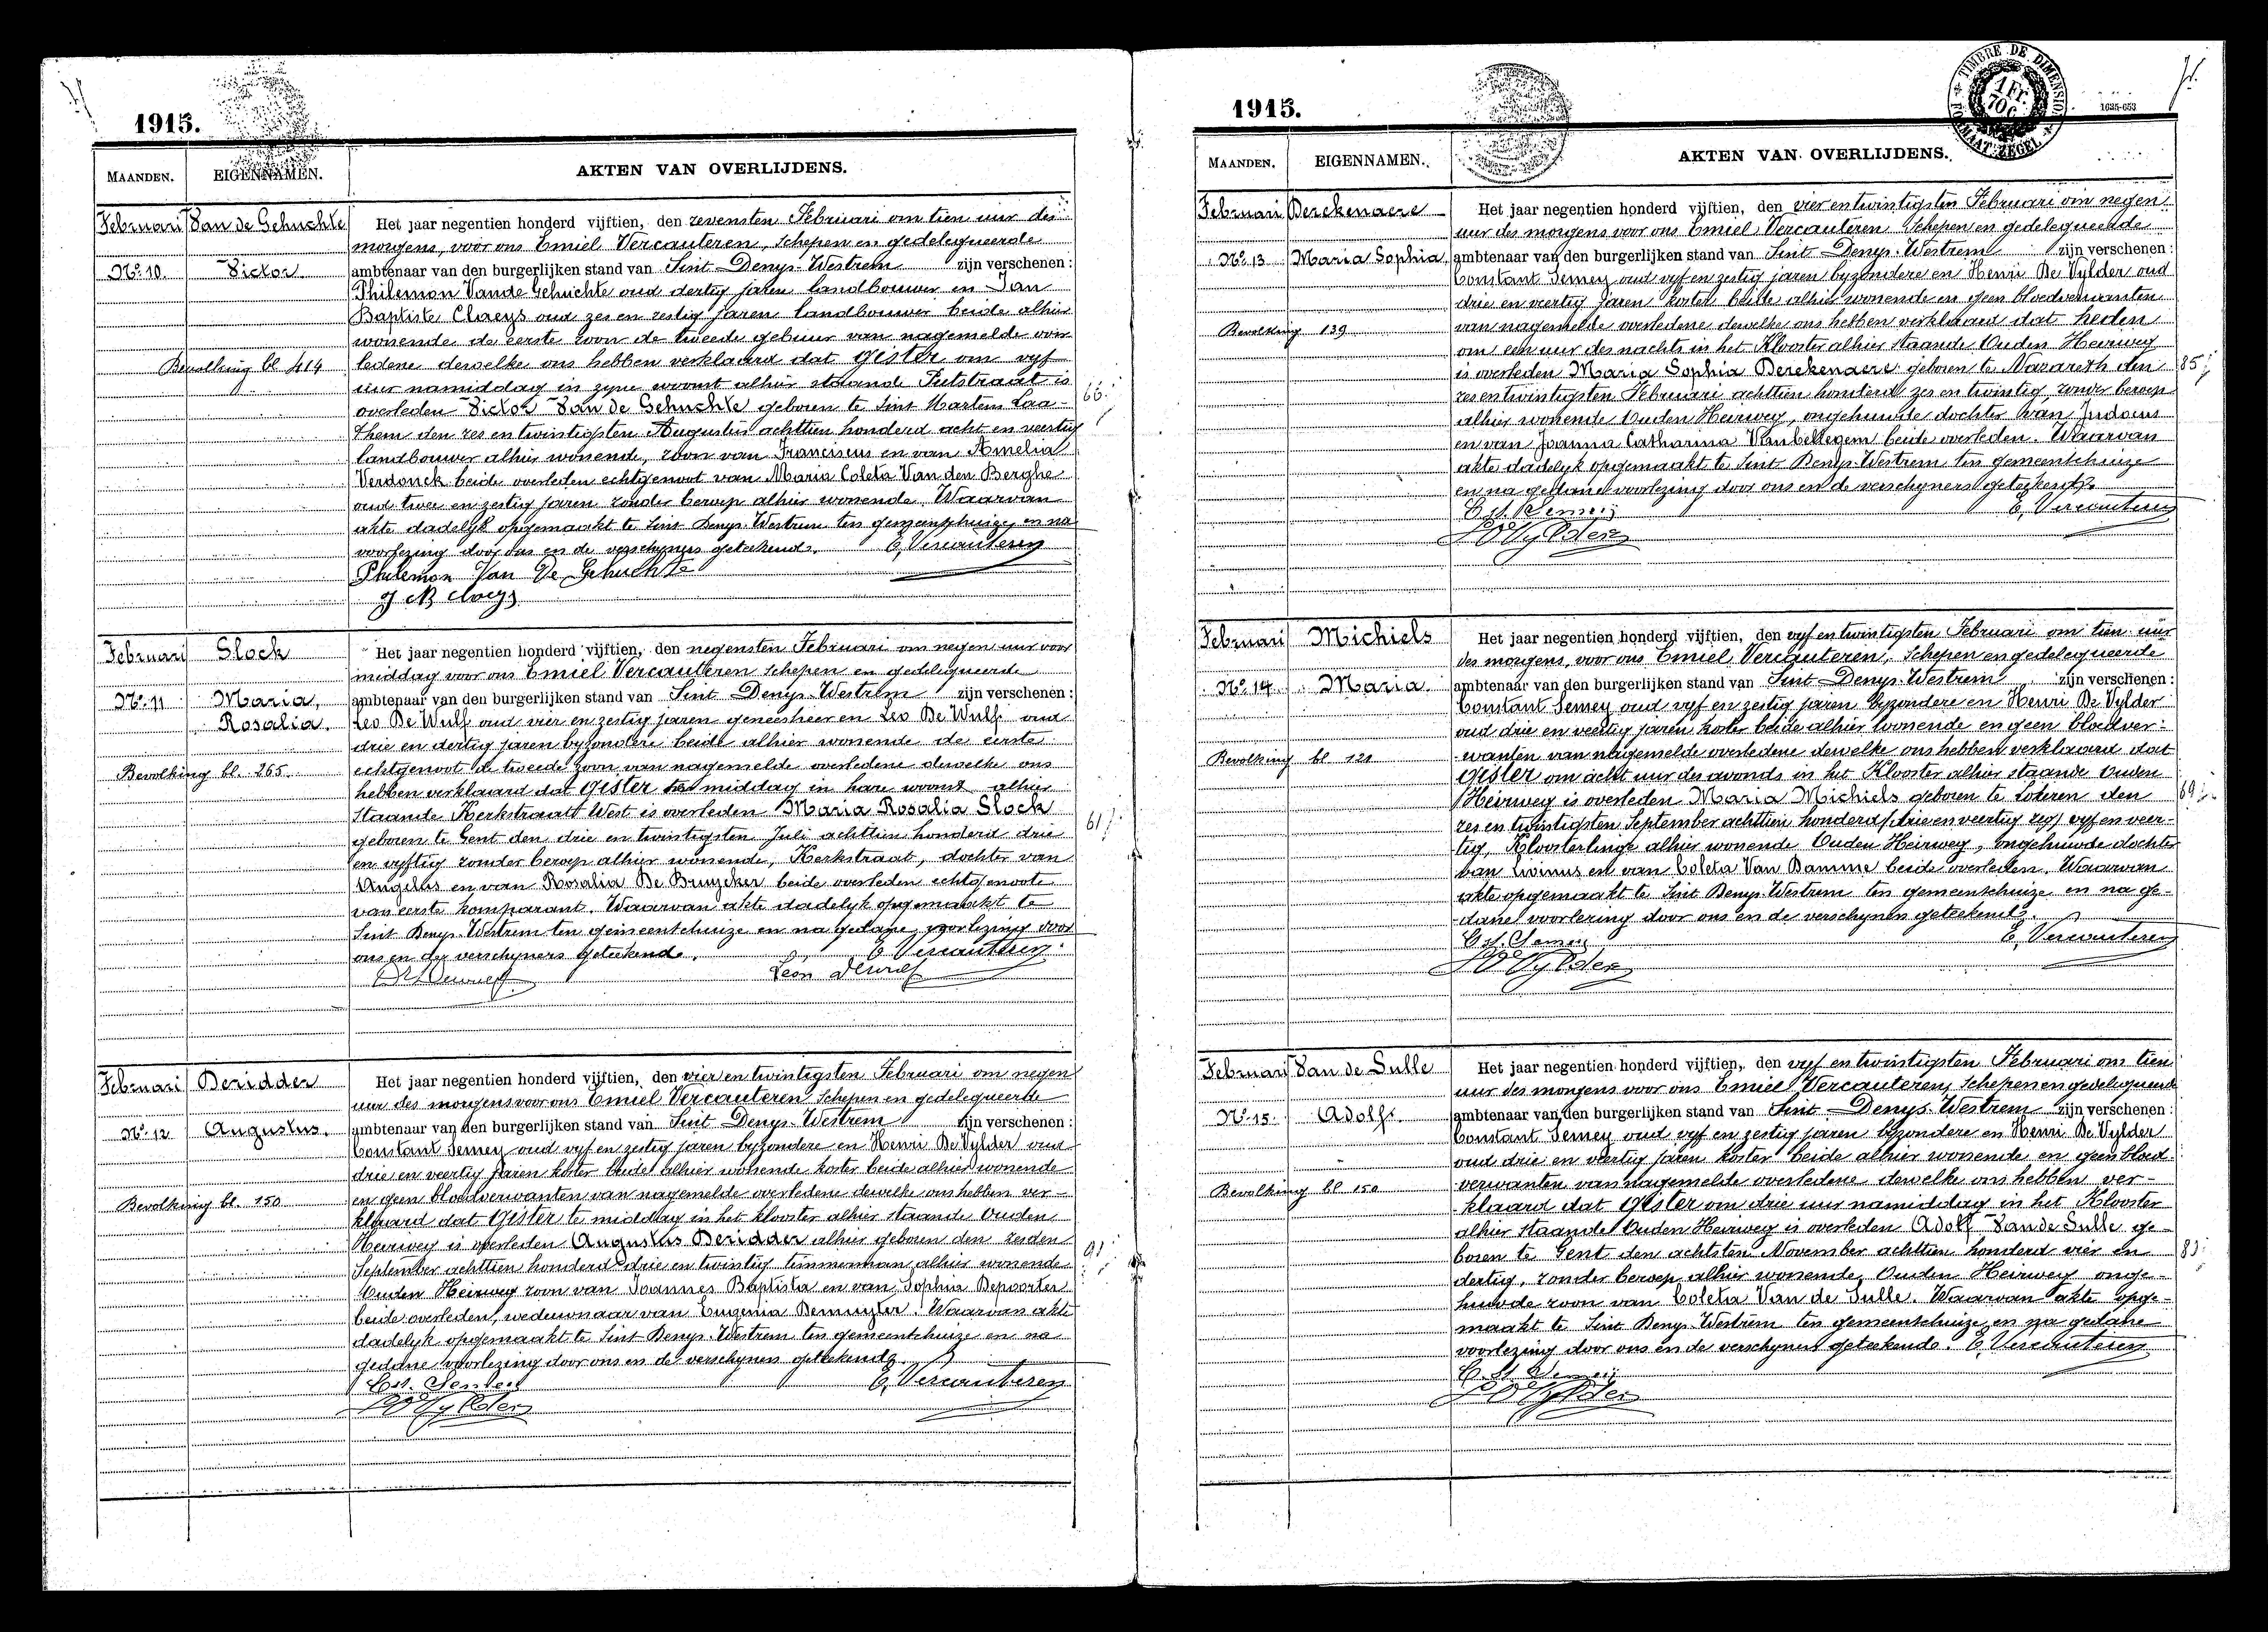 1915.
MAANDEN. EIGENNAMEN. AKTEN VAN OVERLIJDENS.
Februari Van de Gehuchte Het jaar negentien honderd vijftien, den zevensten Februari om tien uur des
morgens, voor ons Emiel Vercauteren, Schepen en gedelegueerde
No. 10. Victor ambtenaar van den burgerlijken stand van Sint Denys-Westrem zijn verschenen:
Philemon Van de Gehuchte oud dertig jaren landbouwer en Jan
Baptiste Claeys oud zes en zestig jaren landbouwer beide alhier
wonende de eerste zoon de tweede gebuur van nagemelde over
Bevolking bl 414 ledene dewelke ons hebben verklaard dat gister om vyf
uur namiddag in zyne woonst alhier staande Putstraat is
overleden Victor Van de Gehuchte geboren te Sint Martens Laa- 66
them den zes en twintigsten Augustus achttien honderd acht en veertig
landbouwer alhier wonende, zoon van Franciscus en van Amelia
Verdonck beide overleden echtgenoot van Maria Coleta Van den Berghe
oud twee en zestig jaren zonder beroep alhier wonende. Waarvan
akte dadelyk opgemaakt te Sint Denys-Westrem ten gemeentehuize, en na
voorlezing door ons en de verschyners geteekend. E. Vercauteren
Philemon Van De Gehuchte
J B Claeys
Februari Slock Het jaar negentien honderd vijftien, den negensten Februari om negen uur voor
middag voor ons Emiel Vercauteren Schepen en gedelegueerde
No. 11 Maria, ambtenaar van den burgerlijken stand van Sint Denys-Westrem zijn verschenen:
Rosalia. Leo De Wulf oud vier en zestig jaren geneesheer en Leo De Wulf oud
drie en dertig jaren byzondere beide alhier wonende de eerste
Bevolking bl. 265. echtgenoot de tweede zoon van nagemelde overledene dewelke ons
hebben verklaard dat gister middag in hare woonst alhier
staande Kerkstraat West is overleden Maria Rosalia Slock
geboren te Gent den drie en twintigsten Juli achttien honderd drie 61
en vyftig zonder beroep alhier wonende, Kerkstraat, dochter van
Angelus en van Rosalia De Bruycker beide overleden echtgenoote
van eerste komparant. Waarvan akte dadelyk opgemaakt te
Sint Denys-Westrem ten gemeentehuize en na gedane voorlezing door
ons en de verschyners geteekend. E. Vercauteren
Léon Dewulf
Februari Deridder Het jaar negentien honderd vijftien, den vier en twintigsten Februari om negen
uur des morgens voor ons Emiel Vercauteren Schepen en gedelegueerde
No. 12 Augustus. ambtenaar van den burgerlijken stand van Sint Denys-Westrem zijn verschenen:
Constant Semey oud vyf en zestig jaren byzondere en Henri De Vylder oud
drie en veertig jaren koster beide alhier wonende koster beide alhier wonende
Bevolking bl. 150 en geen bloedverwanten van nagemelde overledene dewelke ons hebben ver-
klaard dat gister te middag in het klooster alhier staande Ouden
Heirweg is overleden Augustus Deridder alhier geboren den zesden
September achttien honderd drie en twintig timmerman alhier wonende 91
Ouden Heirweg zoon van Joannes Baptista en van Sophia Depoorter
beide overleden, weduwnaar van Eugenia Demuyter. Waarvan akte
dadelyk opgemaakt te Sint Denys-Westrem ten gemeentehuize en na
gedane voorlezing door ons en de verschyners geteekend.
Cst. Semey E. Vercauteren
De Vylder
1915.
TIMBRE DE DIMENSION
1 Fr. 70c.
FORMAAT ZEGEL
1635-653
MAANDEN. EIGENNAMEN. AKTEN VAN OVERLIJDENS.
Februari Berckenaere Het jaar negentien honderd vijftien, den vier en twintigsten Februari om negen
uur des morgens voor ons Emiel Vercauteren Schepen en gedelegueerde
No. 13 Maria Sophia, ambtenaar van den burgerlijken stand van Sint Denys-Westrem zijn verschenen:
Constant Semey oud vyf en zestig jaren byzondere en Henri De Vylder oud
drie en veertig jaren koster beide alhier wonende en geen bloedverwanten
Bevolking 139 van nagemelde overledene dewelke ons hebben verklaard dat heden
om een uur des nachts in het Klooster alhier staande Ouden Heirweg
is overleden Maria Sophia Berckenaere geboren te Nazareth den 85
zes en twintigsten Februari achttien honderd zes en twintig, zonder beroep
alhier wonende Ouden Heirweg, ongehuwde dochter van Judocus
en van Joanna Catharina Vanbellegem beide overleden. Waarvan
akte dadelyk opgemaakt te Sint Denys-Westrem ten gemeentehuize
en na gedane voorlezing door ons en de verschyners geteekend.
Cst. Semey E. Vercauteren
De Vylder
Februari Michiels Het jaar negentien honderd vijftien, den vyf en twintigsten Februari om tien uur
des morgens, voor ons Emiel Vercauteren, Schepen en gedelegueerde
No. 14 Maria ambtenaar van den burgerlijken stand van Sint Denys-Westrem zijn verschenen:
Constant Semey oud vyf en zestig jaren byzondere en Henri De Vylder
oud drie en veertig jaren koster beide alhier wonende en geen bloedver-
Bevolking bl 121 wanten van nagemelde overledene dewelke ons hebben verklaard dat
gister om acht uur des avonds in het Klooster alhier staande Ouden
Heirweg is overleden Maria Michiels geboren te Lokeren den 69
zes en twintigsten September achttien honderd drie en veertig zeg vyf en veer-
tig, Kloosterlinge alhier wonende Ouden Heirweg, ongehuwde dochter
van Livinus en van Coleta Van Damme beide overleden. Waarvan
akte opgemaakt te Sint Denys-Westrem ten gemeentehuize en na ge-
dane voorlezing door ons en de verschyners geteekend.
Cst. Semey E. Vercauteren
De Vylder
Februari Van de Sulle Het jaar negentien honderd vijftien, den vyf en twintigsten Februari om tien
uur des morgens voor ons Emiel Vercauteren, Schepen en gedelegueerde
No. 15. Adolf. ambtenaar van den burgerlijken stand van Sint Denys-Westrem zijn verschenen:
Constant Semey oud vyf en zestig jaren byzondere en Henri De Vylder
oud drie en veertig jaren koster beide alhier wonende en geen bloed-
Bevolking bl 150 verwanten van nagemelde overledene dewelke ons hebben ver-
klaard dat gister om drie uur namiddag in het Klooster
alhier staande Ouden Heirweg is overleden Adolf Van de Sulle ge-
boren te Gent den achtsten November achttien honderd vier en
dertig, zonder beroep alhier wonende, Ouden Heirweg onge-
huwde zoon van Coleta Van de Sulle. Waarvan akte opge-
maakt te Sint Denys-Westrem ten gemeentehuize, en na gedane
voorlezing door ons en de verschyners geteekend. E. Vercauteren
C. St. Semey
De Vylder